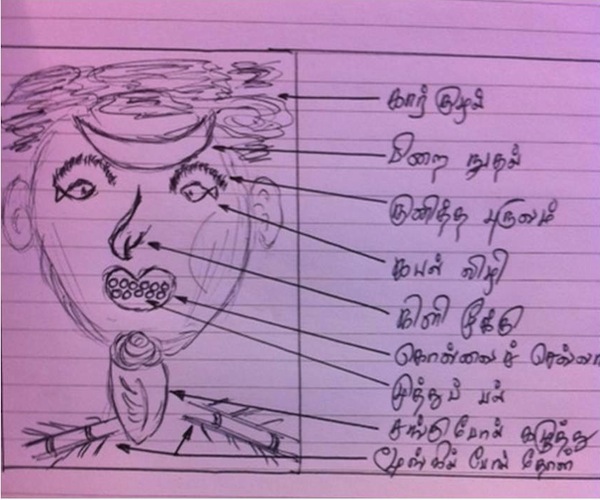 கார் குழல்
பிறை நுதல்
குனித்த புருவம்
கயல் விழி
கிளி மூக்கு
கொவ்வைச் செவ்வா
முத்துப் பல்
சங்கு போல் கழுத்து
மூங்கில் போல் தோள்